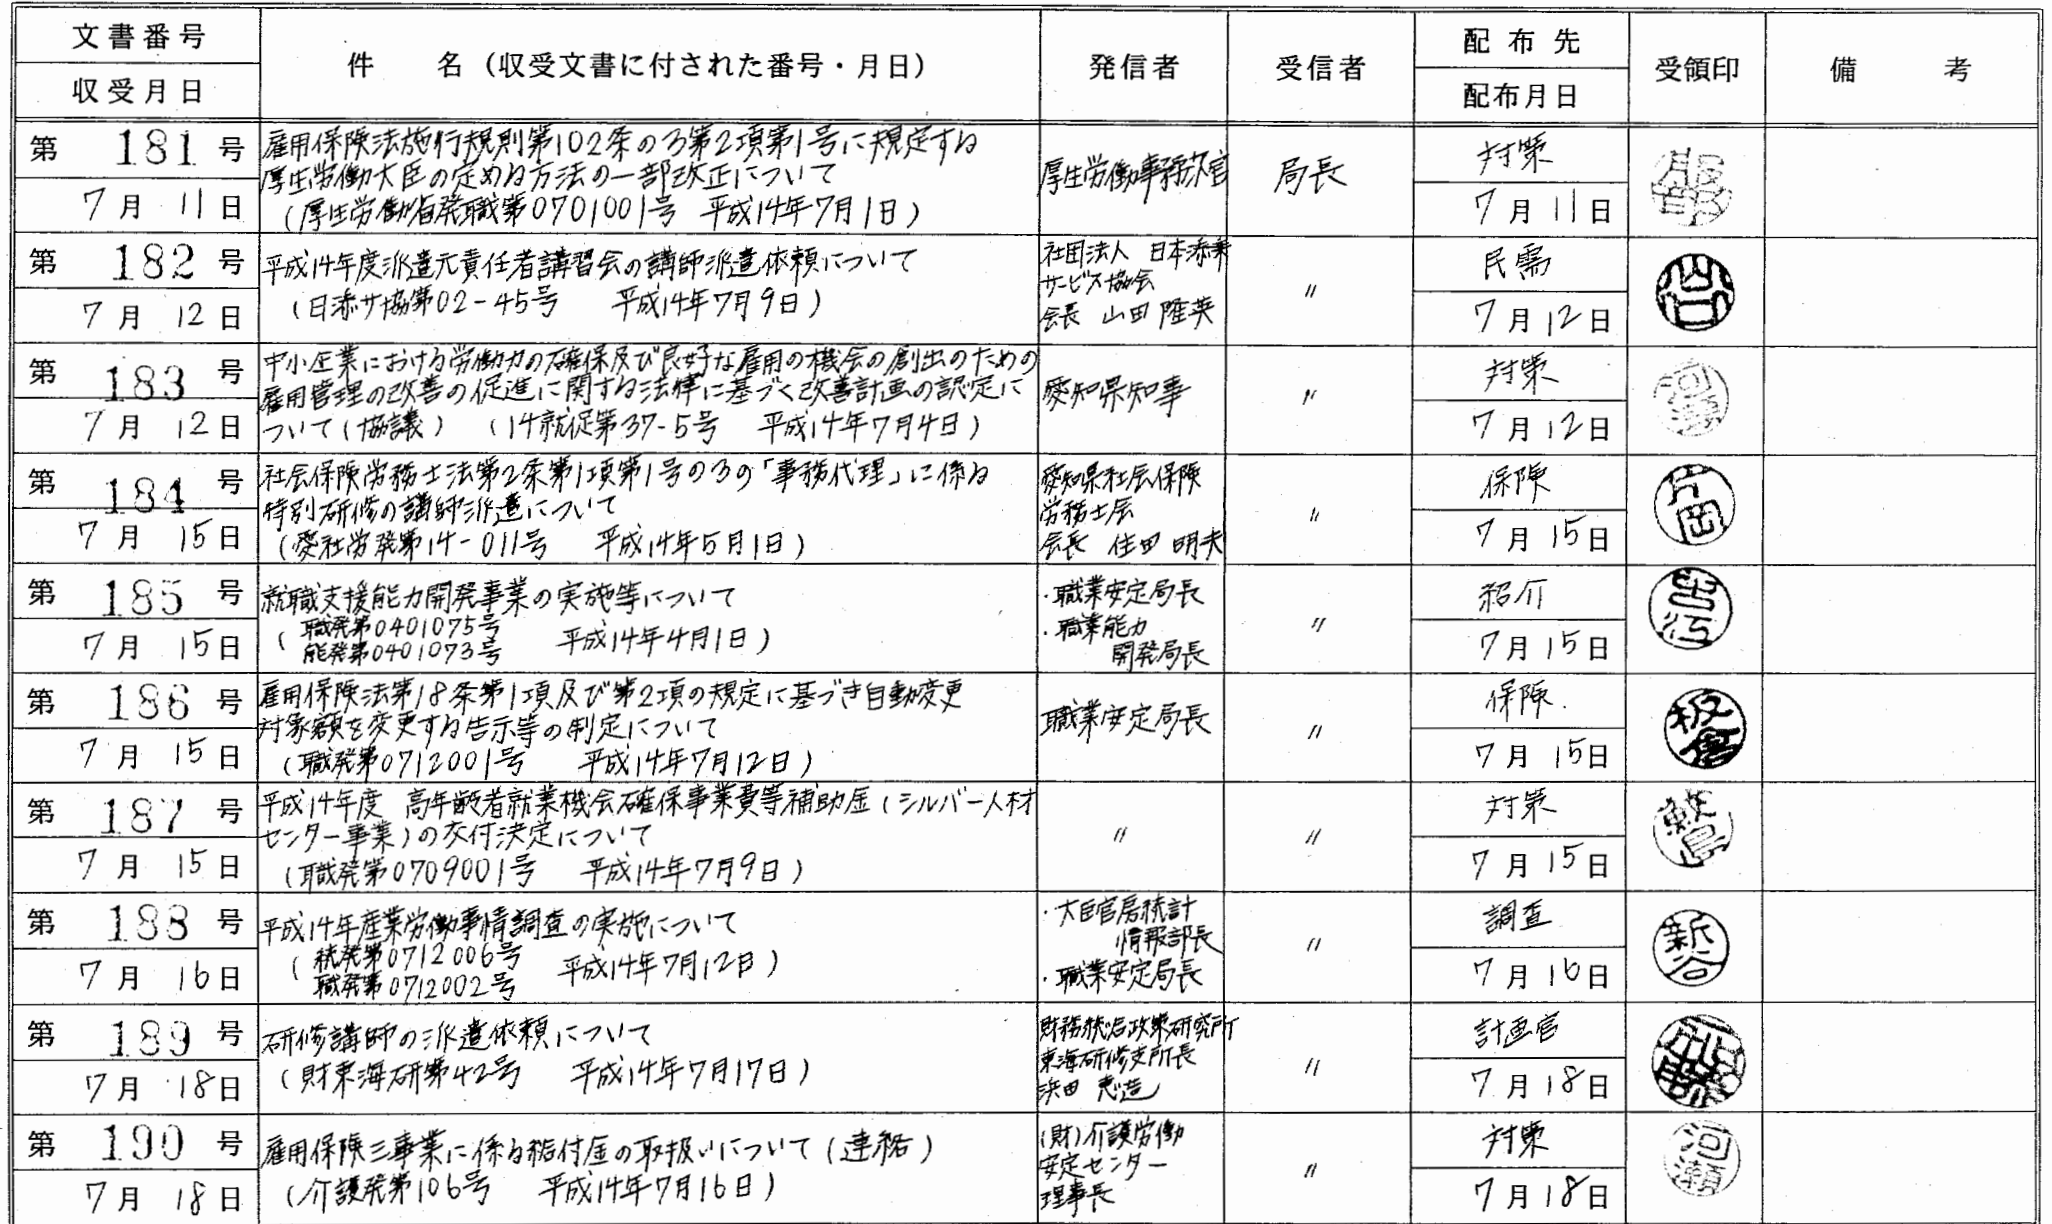 文書番号
収受月日
件　　名（収受文書に付された番号・月日）
発信者
受信者
配布先
配布月日
受領印
備　　考
第 181 号
7月 11日
雇用保険法施行規則第102条の3第2項第1号に規定する
厚生労働大臣の定める方法の一部改正について
（厚生労働省発職第0701001号　平成14年7月1日）
厚生労働事務次官
局長
対策
7月11日
服部
第 182 号
7月 12日
平成14年度派遣元責任者講習会の講師派遣依頼について
（日添サ協第02-45号　平成14年7月9日）
社団法人　日本添乗
サービス協会
会長　山田 隆英
〃
民需
7月12日
第 183 号
7月 12日
中小企業における労働力の確保及び良好な雇用の機会の創出のための
雇用管理の改善の促進に関する法律に基づく改善計画の認定に
ついて（協議）　（14就促第37-5号　平成14年7月4日）
愛知県知事
〃
対策
7月12日
河瀬
第 184 号
7月 15日
社会保険労務士法第2条第1項第1号の3の「事務代理」に係る
特別研修の講師派遣について
（愛社労発第14-011号　平成14年5月1日）
愛知県社会保険
労務士会
会長　住田 明夫
〃
保険
7月15日
片岡
第 185 号
7月 15日
就職支援能力開発事業の実施等について
（職発第0401075号
能発第0401073号　平成14年4月1日）
・職業安定局長
・職業能力
開発局長
〃
紹介
7月15日
第 186 号
7月 15日
雇用保険法第18条第1項及び第2項の規定に基づき自動変更
対象額を変更する告示等の制定について
（職発第0712001号　平成14年7月12日）
職業安定局長
〃
保険
7月15日
板倉
第 187 号
7月 15日
平成14年度　高年齢者就業機会確保事業費等補助金（シルバー人材
センター事業）の交付決定について
（職発第0709001号　平成14年7月9日）
〃
〃
対策
7月15日
鮫島
第 188 号
7月 16日
平成14年産業労働事情調査の実施について
（統発第0712006号
職発第0712002号　平成14年7月12日）
・大臣官房統計
情報部長
・職業安定局長
〃
調査
7月16日
新谷
第 189 号
7月 18日
研修講師の派遣依頼について
（財東海研第42号　平成14年7月17日）
財務総合政策研究所
東海研修支所長
浜田 恵造
〃
計画官
7月18日
第 190 号
7月 18日
雇用保険三事業に係る給付金の取扱いについて（連絡）
（介護発第106号　平成14年7月16日）
（財）介護労働
安定センター
理事長
〃
対策
7月18日
河瀬